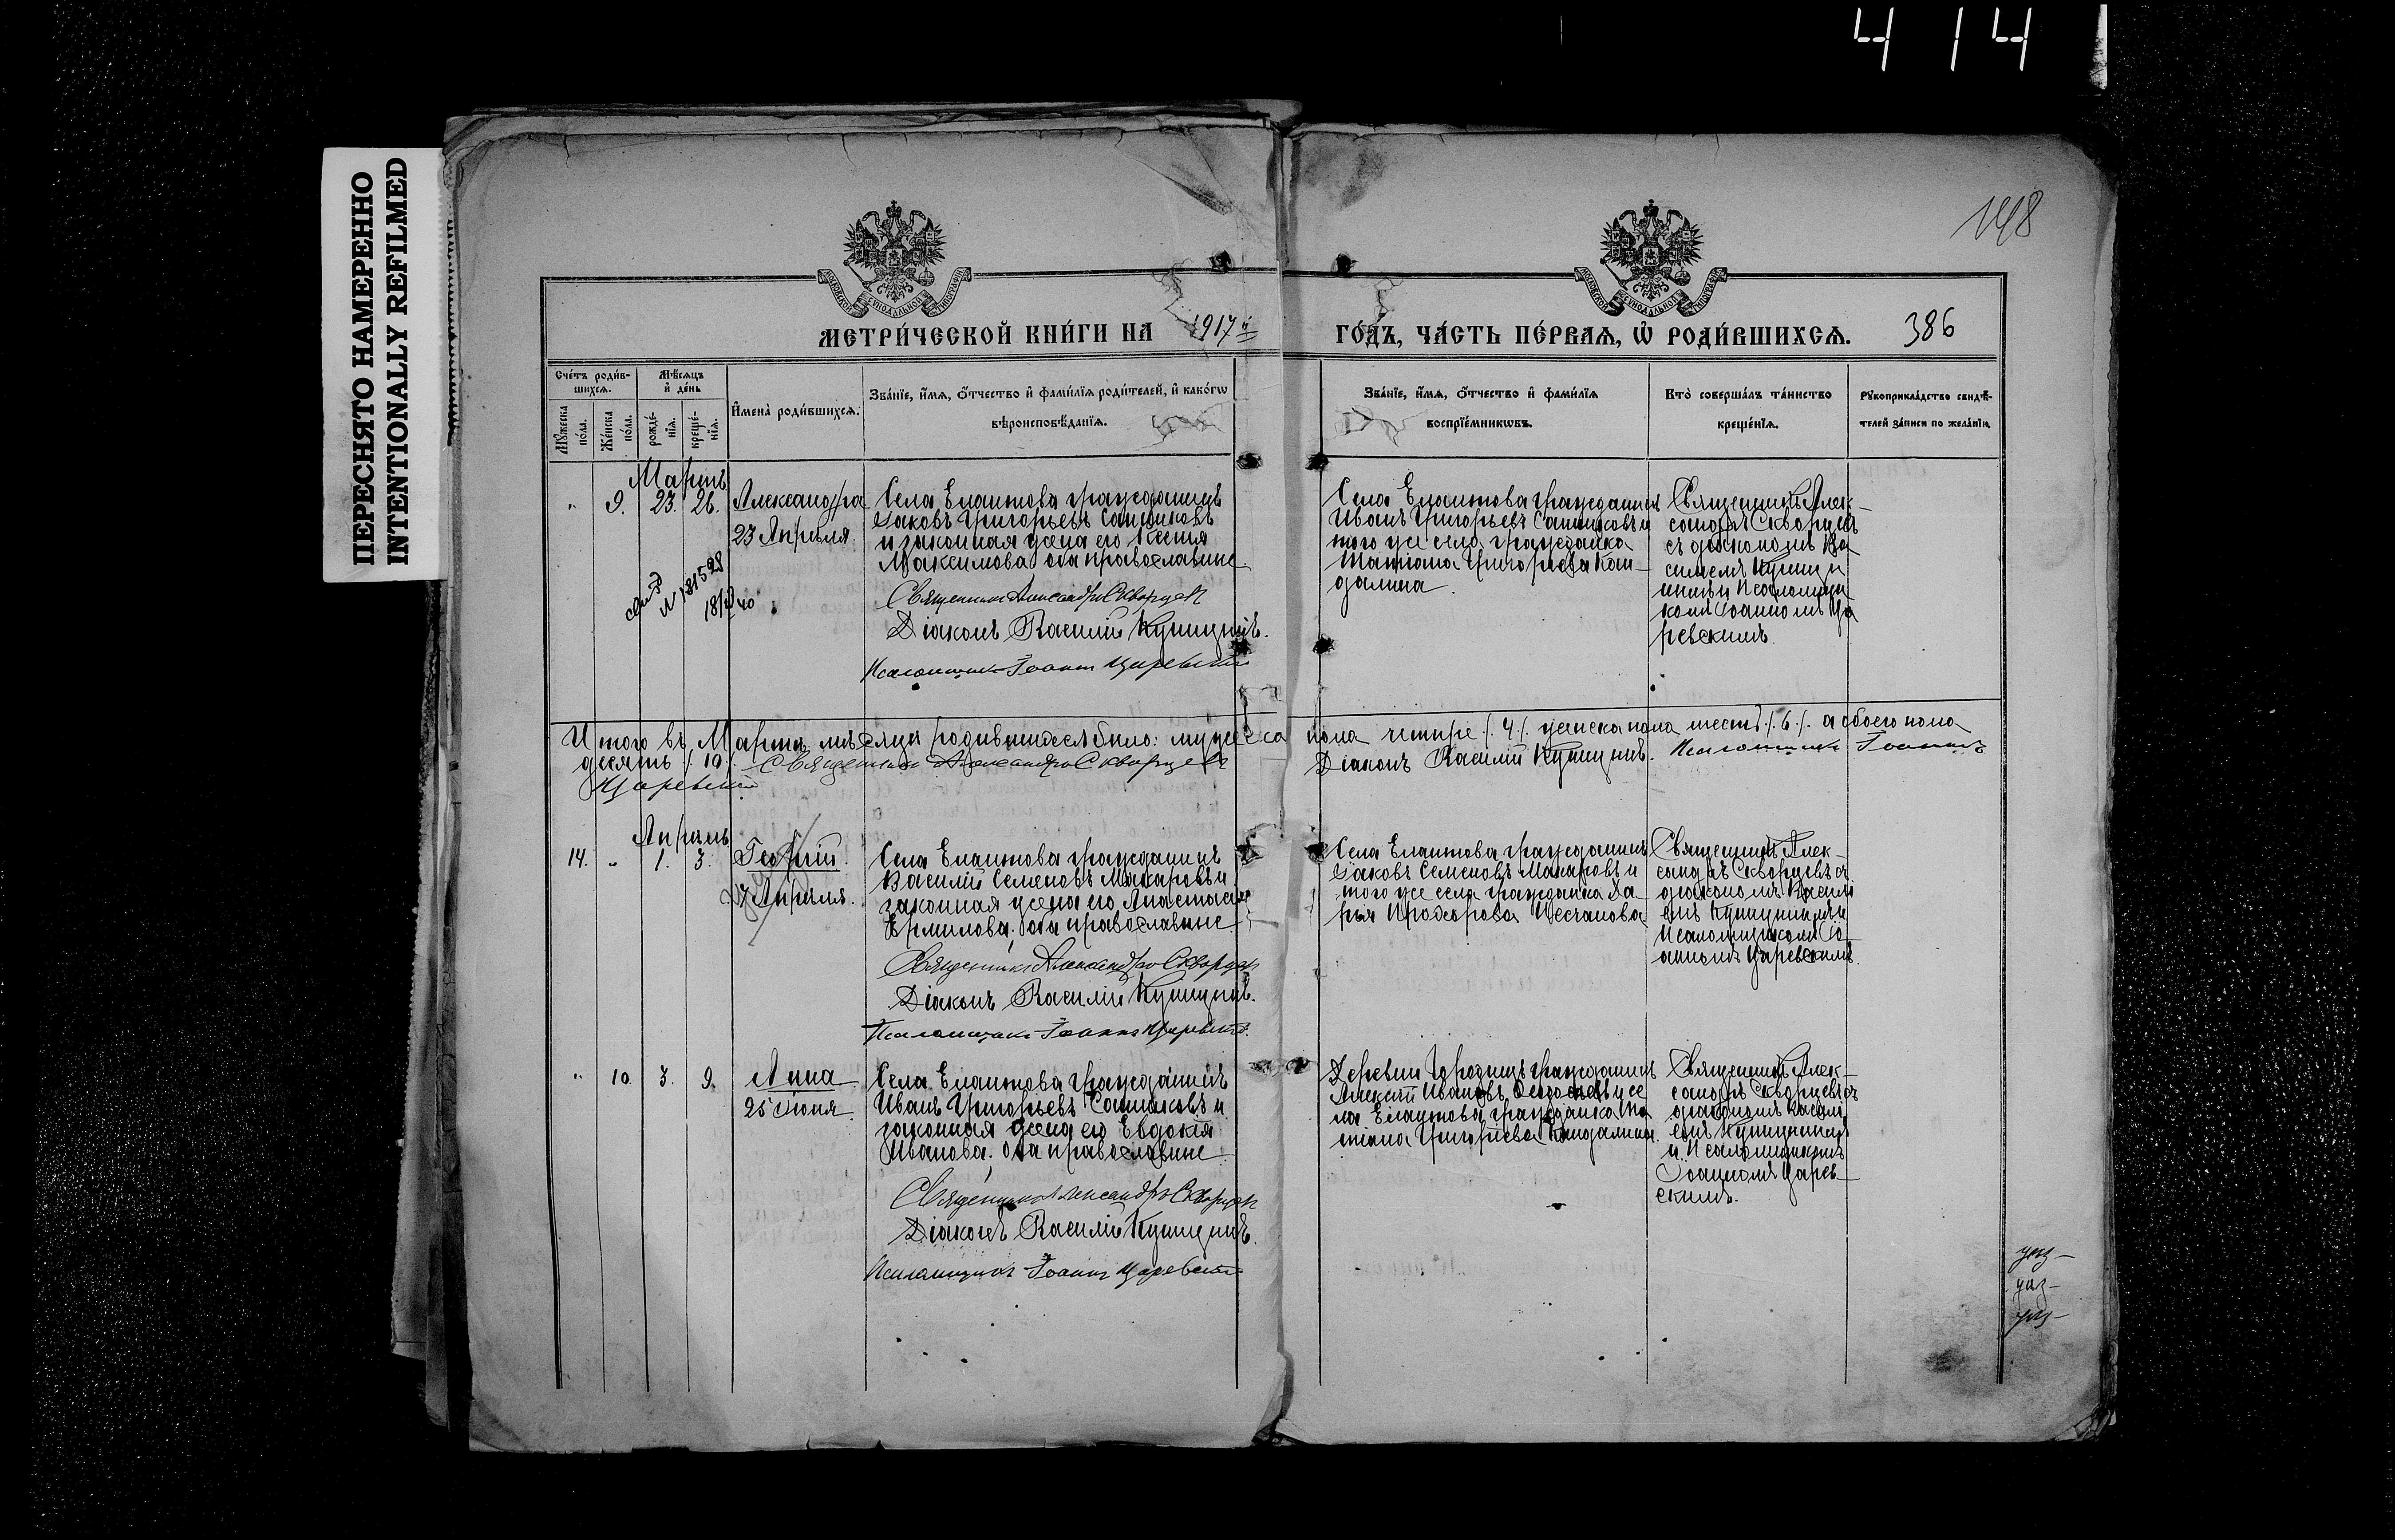 4 14
ПЕРЕСНЯТО НАМЕРЕННО
INTENTIONALLY REFILMED
148
МЕТРИ́ЧЕСКОЙ КНИ́ГИ НА 1917 й
ГО́ДЪ, ЧА́СТЬ ПЕ́РВАѦ, Ѡ РОДИ́ВШИХСѦ. 386
Сче́тъ роди́в-
шихся.
Мꙋ́жеска по́ла.
Же́нска по́ла.
Мѣ́сѧцъ и де́нь
рожде́-
нїѧ.
креще́-
нїѧ.
Имена̀ роди́вшихсѧ.
Зва́нїе, и́мѧ, о́тчество и фами́лїѧ роди́телей, и како́гѡ
вѣроисповѣ́данїѧ.
Зва́нїе, и́мѧ, о́тчество и фами́лїѧ
воспрїе́мникѡвъ.
Кто̀ соверша́лъ та́инство
креще́нїѧ.
Рꙋкоприкла́дство свидѣ́-
телей за́писи по жела́нїю.
Мартъ
" 9. 23. 26. Александра
23 Апрѣля
№ 181528
Села Елатнова гражданинъ
Іаковъ Григорьевъ Сапунковъ
и законная жена его Ксенія
Максимова оба православные
Священникъ Александръ Скворцевъ
Діаконъ Василій Куницынъ.
Псаломщикъ Іоаннъ Царевскій
Села Елатнова гражданинъ
Иванъ Григорьевъ и
того же села гражданка
Татіана Григорьева Кан-
далина.
Священникъ Алек-
сандръ Скворцевъ
съ діакономъ Ва
силіемъ Куницы
нымъ и Псаломщи
комъ Іоанномъ Ца
ревскимъ.
Итого въ Мартѣ мѣсяцѣ родившихся было: мужеска пола четыре /.4./. женска пола шесть /.6./. а обоего пола
десять /.10./. Священникъ Александръ Скворцевъ Діаконъ Василій Куницынъ. Псаломщикъ Іоаннъ
Царевскій
Апрѣль
14. " 1. 3. Георгій.
Апрѣля.
Села Елатнова гражданинъ
Василій Семеновъ Макаровъ и
законная жена его Анастасія
Ермилова. оба православные
Священникъ Александръ Скворцевъ
Діаконъ Василій Куницынъ.
Псаломщикъ Іоаннъ Царевскій.
Села Елатнова гражданинъ
Іаковъ Семеновъ Макаровъ и
того же села гражданка Да
рья Прохорова
Священникъ Алек-
сандръ Скворцевъ съ
діакономъ Василі
емъ Куницынымъ и
Псаломщикомъ Іо
анномъ Царевскимъ.
" 10. 3. 9. Анна
25 Іюня.
Села Елатнова гражданинъ
Иванъ Григорьевъ и
законная жена его Евдокія
Иванова. Оба православные
Священникъ Александръ Скворцевъ
Діаконъ Василій Куницынъ.
Псаломщикъ Іоаннъ Царевскій
Деревни гражданинъ
Алексій Ивановъ и се
ла Елатнова гражданка Та
тіана Григорьева Кандалина.
Священникъ Алек-
сандръ Скворцевъ съ
діакономъ Василі
емъ Куницынымъ
и Псаломщикомъ
Іоанномъ Царев-
скимъ.